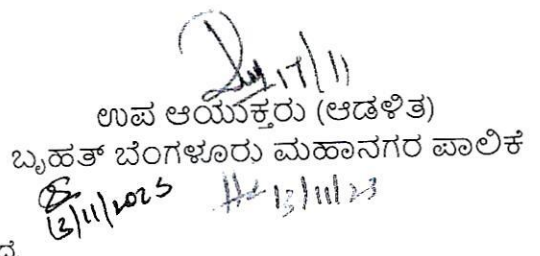 17/11
ಉಪ ಆಯುಕ್ತರು (ಆಡಳಿತ)
ಬೃಹತ್ ಬೆಂಗಳೂರು ಮಹಾನಗರ ಪಾಲಿಕೆ
13/11/2023 13/11/23